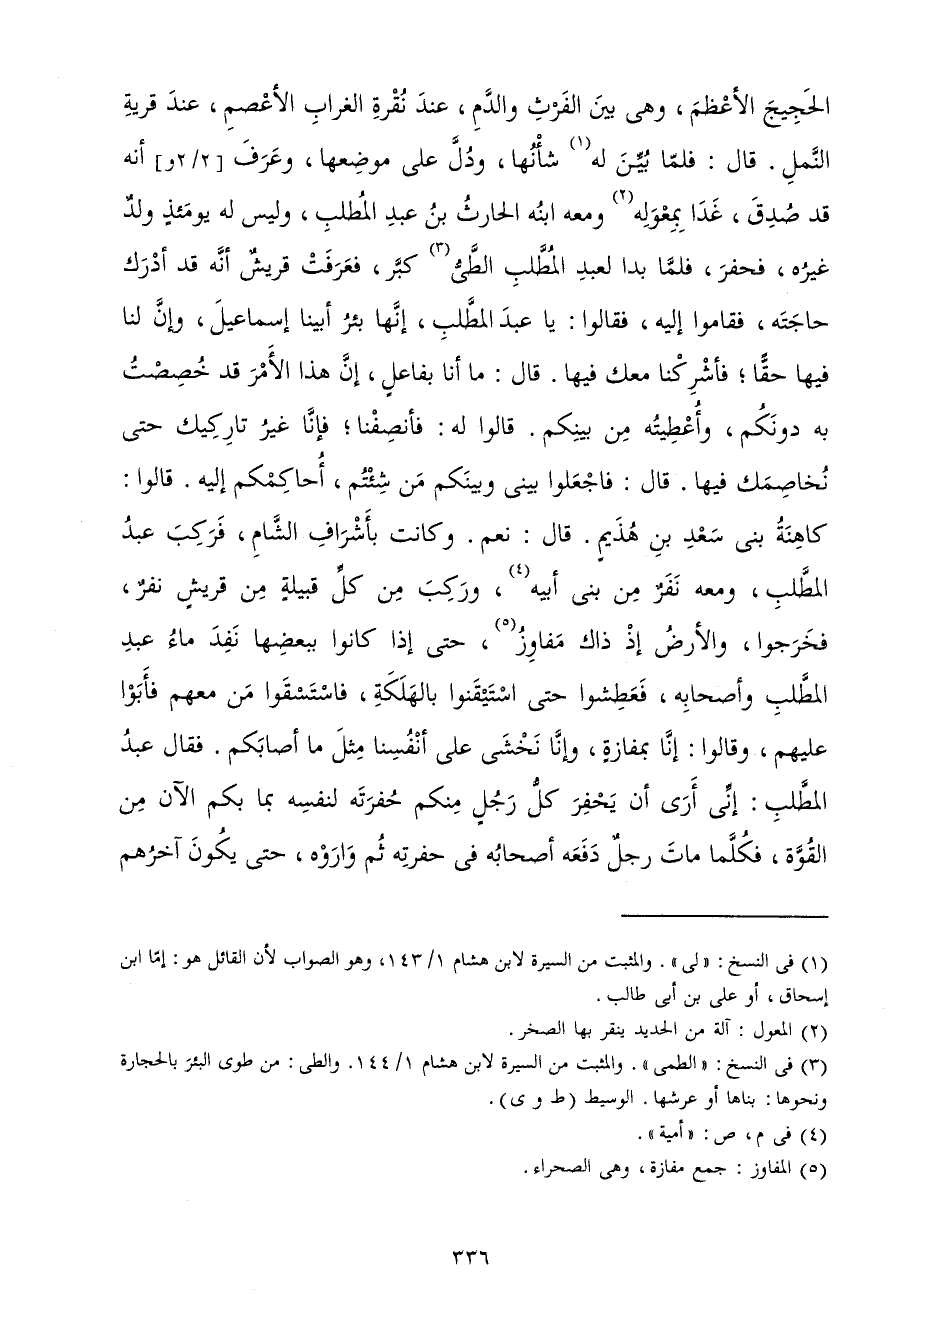 الحَجِيجَ الأعْظمَ ، وهى بينَ الفَرْثِ والدَّمِ ، عندَ نُقْرةِ الغرابِ الأعْصمِ ، عندَ قريةِ
النَّملِ . قال : فلمّا بُيِّنَ له(١) شأْنُها ، ودُلَّ على موضعِها ، وعَرَفَ [٢/٢و] أنه
قد صُدِقَ ، غَدَا بِمِعْوَلِه(٢) ومعه ابنُه الحارثُ بنُ عبدِ المُطلبِ ، وليس له يومَئذٍ ولدٌ
غيرُه ، فحفرَ ، فلمَّا بدا لعبدِ المُطَّلبِ الطَّىُّ(٣) كبَّر ، فعَرَفَتْ قريشٌ أنَّه قد أدْرَك
حاجَتَه ، فقاموا إليه ، فقالوا : يا عبدَ المطَّلبِ ، إنَّها بئرُ أبينا إسماعيلَ ، وإنَّ لنا
فيها حقًّا ؛ فأشْرِكْنا معك فيها . قال : ما أنا بفاعلٍ ، إنَّ هذا الأمْرَ قد خُصِصْتُ
به دونَكُم ، وأُعْطِيتُه مِن بينِكم . قالوا له : فأنصِفْنا ؛ فإنَّا غيرُ تارِكِيك حتى
نُخاصِمَك فيها . قال : فاجْعَلوا بينى وبينَكم مَن شِئْتُم ، أُحاكِمْكم إليه . قالوا :
كاهنَةُ بنى سَعْدِ بنِ هُذَيمٍ . قال : نعم . وكانت بأَشْرَافِ الشَّامِ ، فَرَكِبَ عبدُ
المطَّلبِ ، ومعه نَفَرٌ مِن بنى أبيه(٤) ، ورَكِبَ مِن كلِّ قبيلةٍ مِن قريشٍ نفرٌ ،
فخَرَجوا ، والأرضُ إذْ ذاك مَفاوِزُ(٥) ، حتى إذا كانوا ببعضِها نَفِدَ ماءُ عبدِ
المطَّلبِ وأصحابِه ، فعَطِشوا حتى اسْتَيْقَنوا بالهَلَكَةِ ، فاسْتَسْقَوا مَن معهم فأَبَوْا
عليهم ، وقالوا : إنَّا بمفازةٍ ، وإنَّا نَخْشَى على أنْفُسِنا مِثلَ ما أصابَكم . فقال عبدُ
المطَّلبِ : إنِّى أَرَى أن يَحْفِرَ كلُّ رَجُلٍ مِنكم حُفرَتَه لنفسِه بما بكم الآن مِن
القُوَّة ، فكُلَّما ماتَ رجلٌ دَفَعَه أصحابُه فى حفرتِه ثُم وَارَوْه ، حتى يكُونَ آخرُهم
(١) فى النسخ : «لى» . والمثبت من السيرة لابن هشام ١/ ١٤٣، وهو الصواب لأن القائل هو : إمّا ابن
إسحاق ، أو على بن أبى طالب .
(٢) المعول : آلة من الحديد ينقر بها الصخر .
(٣) فى النسخ : «الطمى» . والمثبت من السيرة لابن هشام ١/ ١٤٤. والطى : من طوى البئرَ بالحجارة
ونحوها : بناها أو عرشها . الوسيط (ط و ى) .
(٤) فى م ، ص : «أمية» .
(٥) المفاوز : جمع مفازة ، وهى الصحراء .
٣٣٦